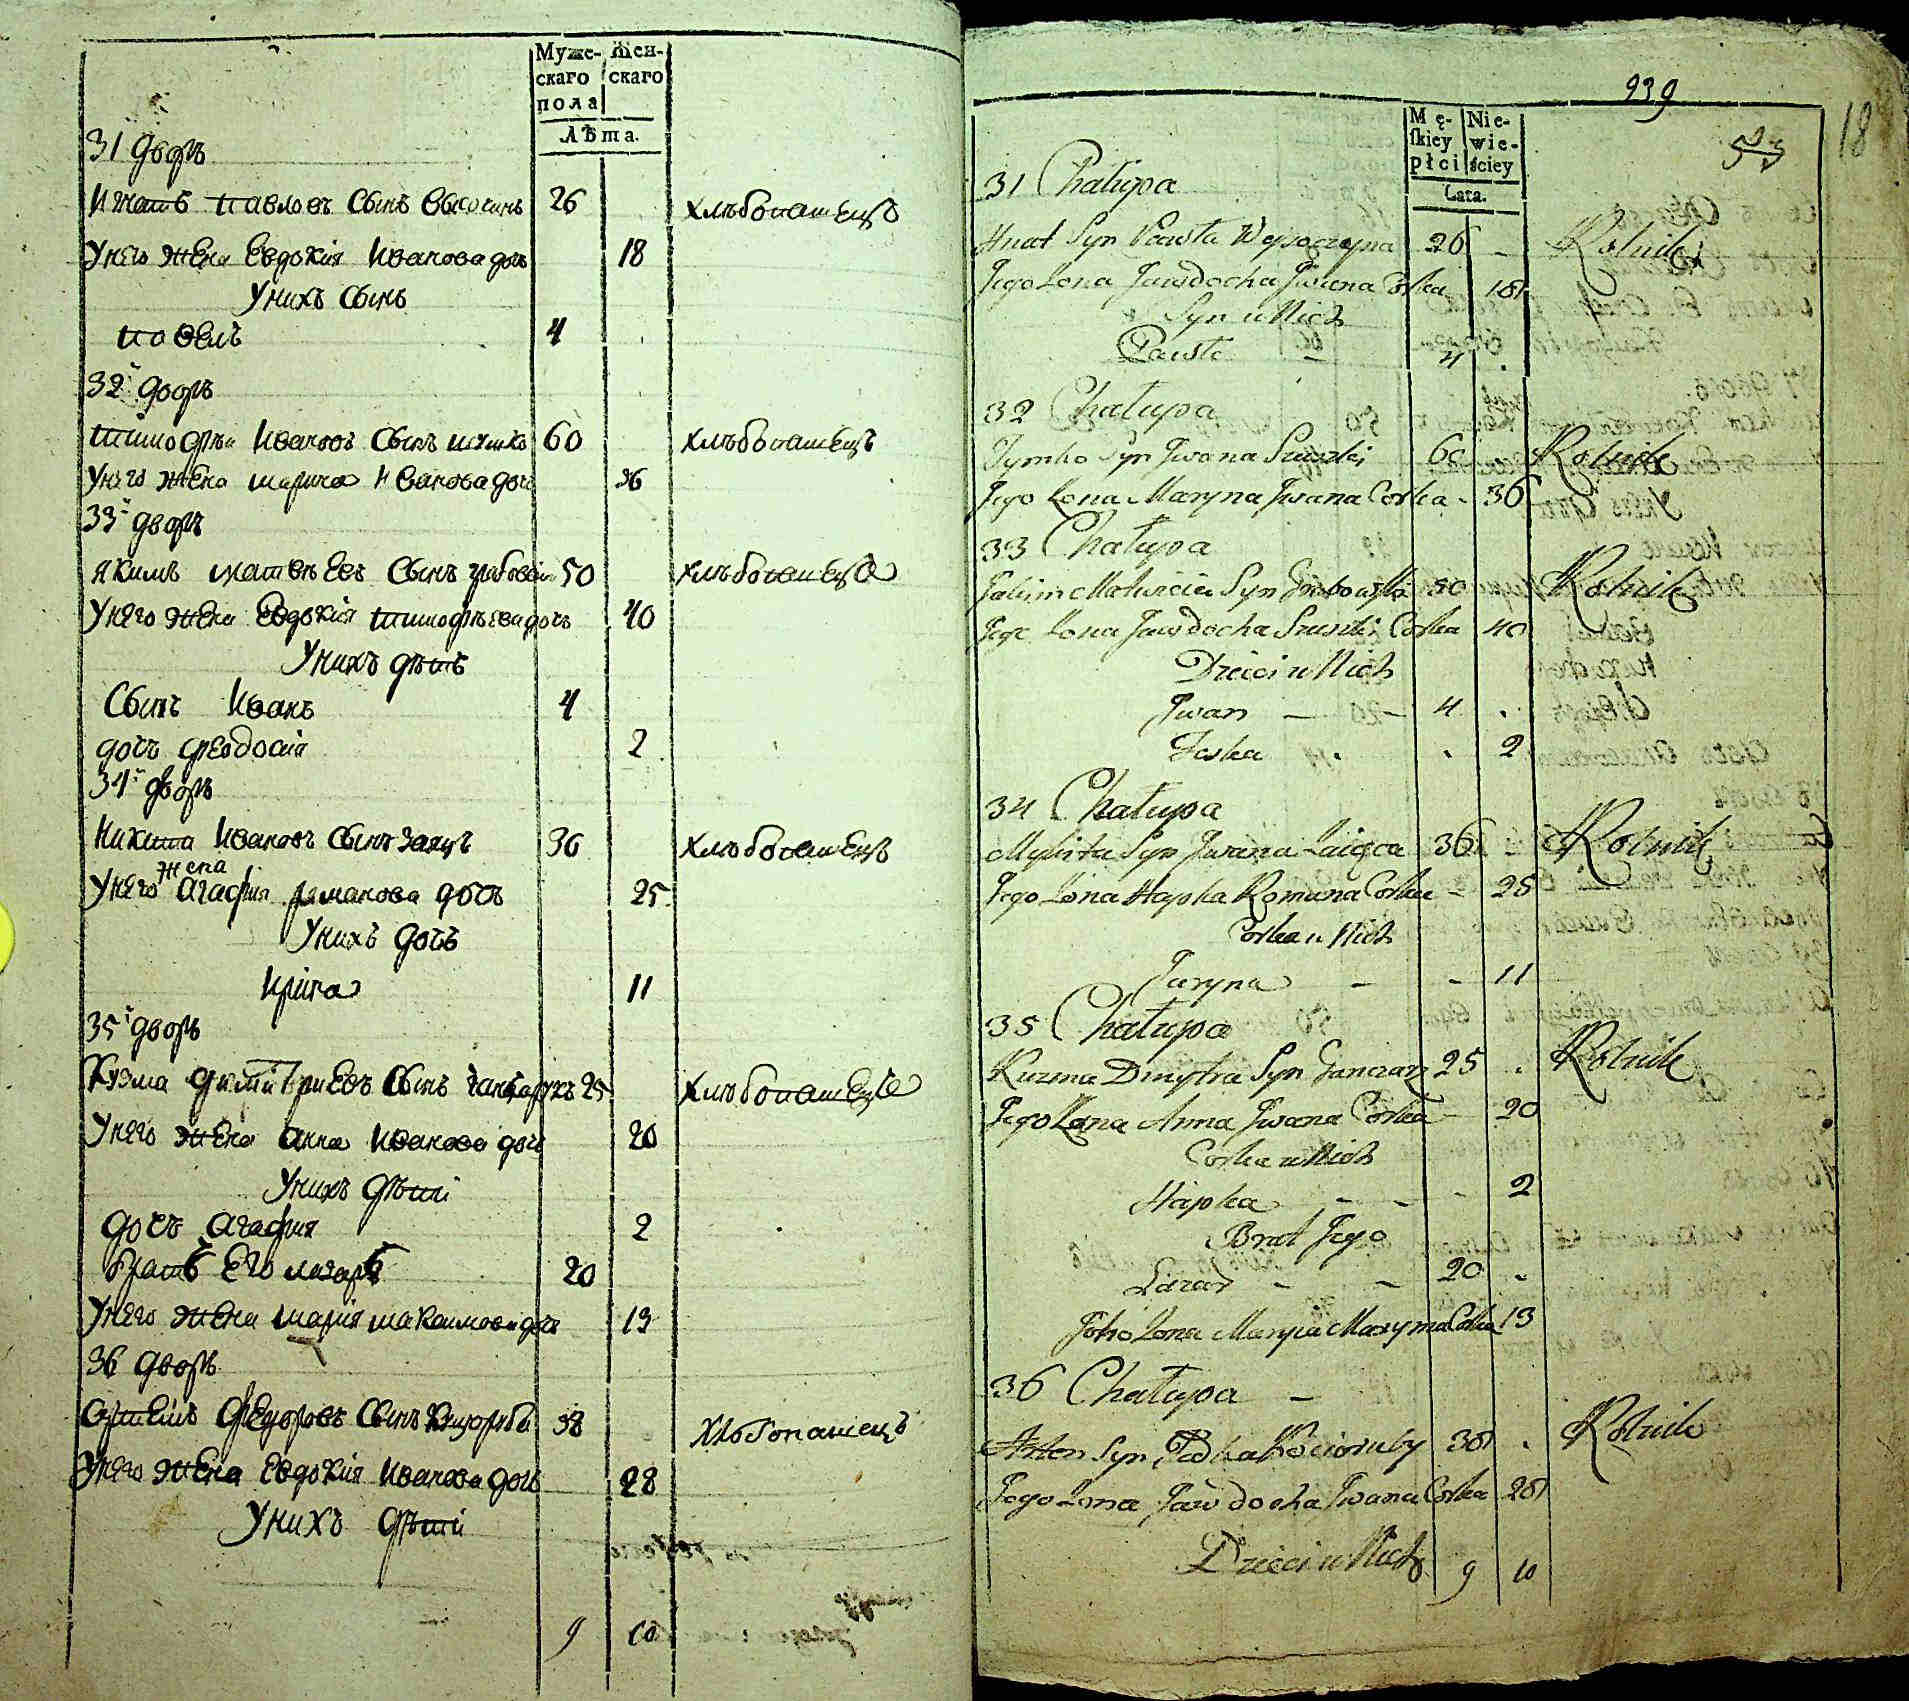 Муже-
скаго
пола
Жен-
скаго
Лѣта.
31 дворъ
Игнатъ Павловъ сынъ 26 хлѣбопашецъ
У него жена Евдокія Иванова дочь 18
У нихъ сынъ
Павелъ 4
32й дворъ
Тимофѣй Ивановъ сынъ 60 хлѣбопашецъ
У него жена Марина Иванова дочь 36
33й дворъ
Якимъ Матвѣевъ сынъ 50 хлѣбопашецъ
У него жена Евдокія Тимофѣева дочь 40
У нихъ дѣти
Сынъ Иванъ 4
дочь Феодосія 2
34й дворъ
Никита Ивановъ сынъ Заяцъ 36 хлѣбопашецъ
жена
У него Агафія Романова дочь 25
У нихъ дочь
Ирина 11
35й дворъ
Кузма Димитріевъ сынъ 25 хлѣбопашецъ
У него жена Анна Иванова дочь 20
У нихъ дѣти
дочь Агафия 2
братъ его Лазарь 20
У него жена Марія Максимова дочь 19
36 дворъ
Артемъ Федоровъ сынъ 38 хлѣбопашецъ
У него жена Евдокія Иванова дочь 28
У нихъ дѣти
9 10
939
18
Mę-
ſkiey
płci
Nie-
wie-
ściey
Lata.
31 Chałupa
Hnat Syn Pawła Wysoczyna 26 - Rolnik
Jego Zona Jawdocha Jwana Corka 18
Syn u Nich
Pawło 4 .
32 Chałupa
Tymko Syn Jwana Szuszki 60 . Rolnik
Jego Zona Maryna Jwana Corka - 36
33 Chałupa
Jakim Matwieia Syn Grabowski 50 Rolnik
Jego Zona Jawdocha Szuszki Corka 40
Dzieci u Nich
Jwan - 4 .
Feska . . 2
34 Chałupa
Mykita Syn Jwana Zaięca 36 - Rolnik
Jego Zona Hapka Romana Corka - 25
Corka u Nich
Jaryna - - 11
35 Chałupa
Kuzma Dmytra Syn Ganczarz 25 . Rolnik
Jego Zona Anna Jwana Corka - 20
Corka u Nich
Hapka - - - 2
Brat Jego
Łazar - - 20 -
Joho Zona Maryia Maxyma Corka 19
36 Chałupa -
Artem Syn Fedka Kocioruby 38 . Rolnik
Jego Zona Jawdocha Jwana Corka 28
Dzieci u Nich 9 10